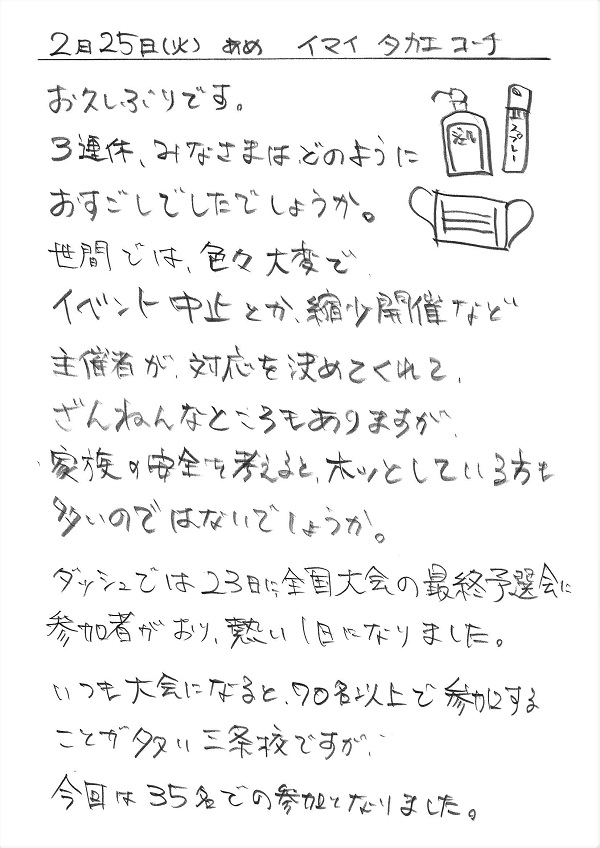 2月25日(火) あめ イマイ タカエ コーチ
お久しぶりです。
3連休、みなさまは、どのように
おすごしでしたでしょうか。
世間では、色々大変で、
イベント中止とか、縮少開催など
主催者が、対応を決めてくれて、
ざんねんなところもありますが、
家族の安全を考えると、ホッとしている方も
多いのではないでしょうか。
ダッシュでは23日に全国大会の最終予選会に
参加者がおり、熱い1日になりました。
いつも大会になると、70名以上で参加する
ことが多い三条校ですが、
今回は35名での参加となりました。
スプレー